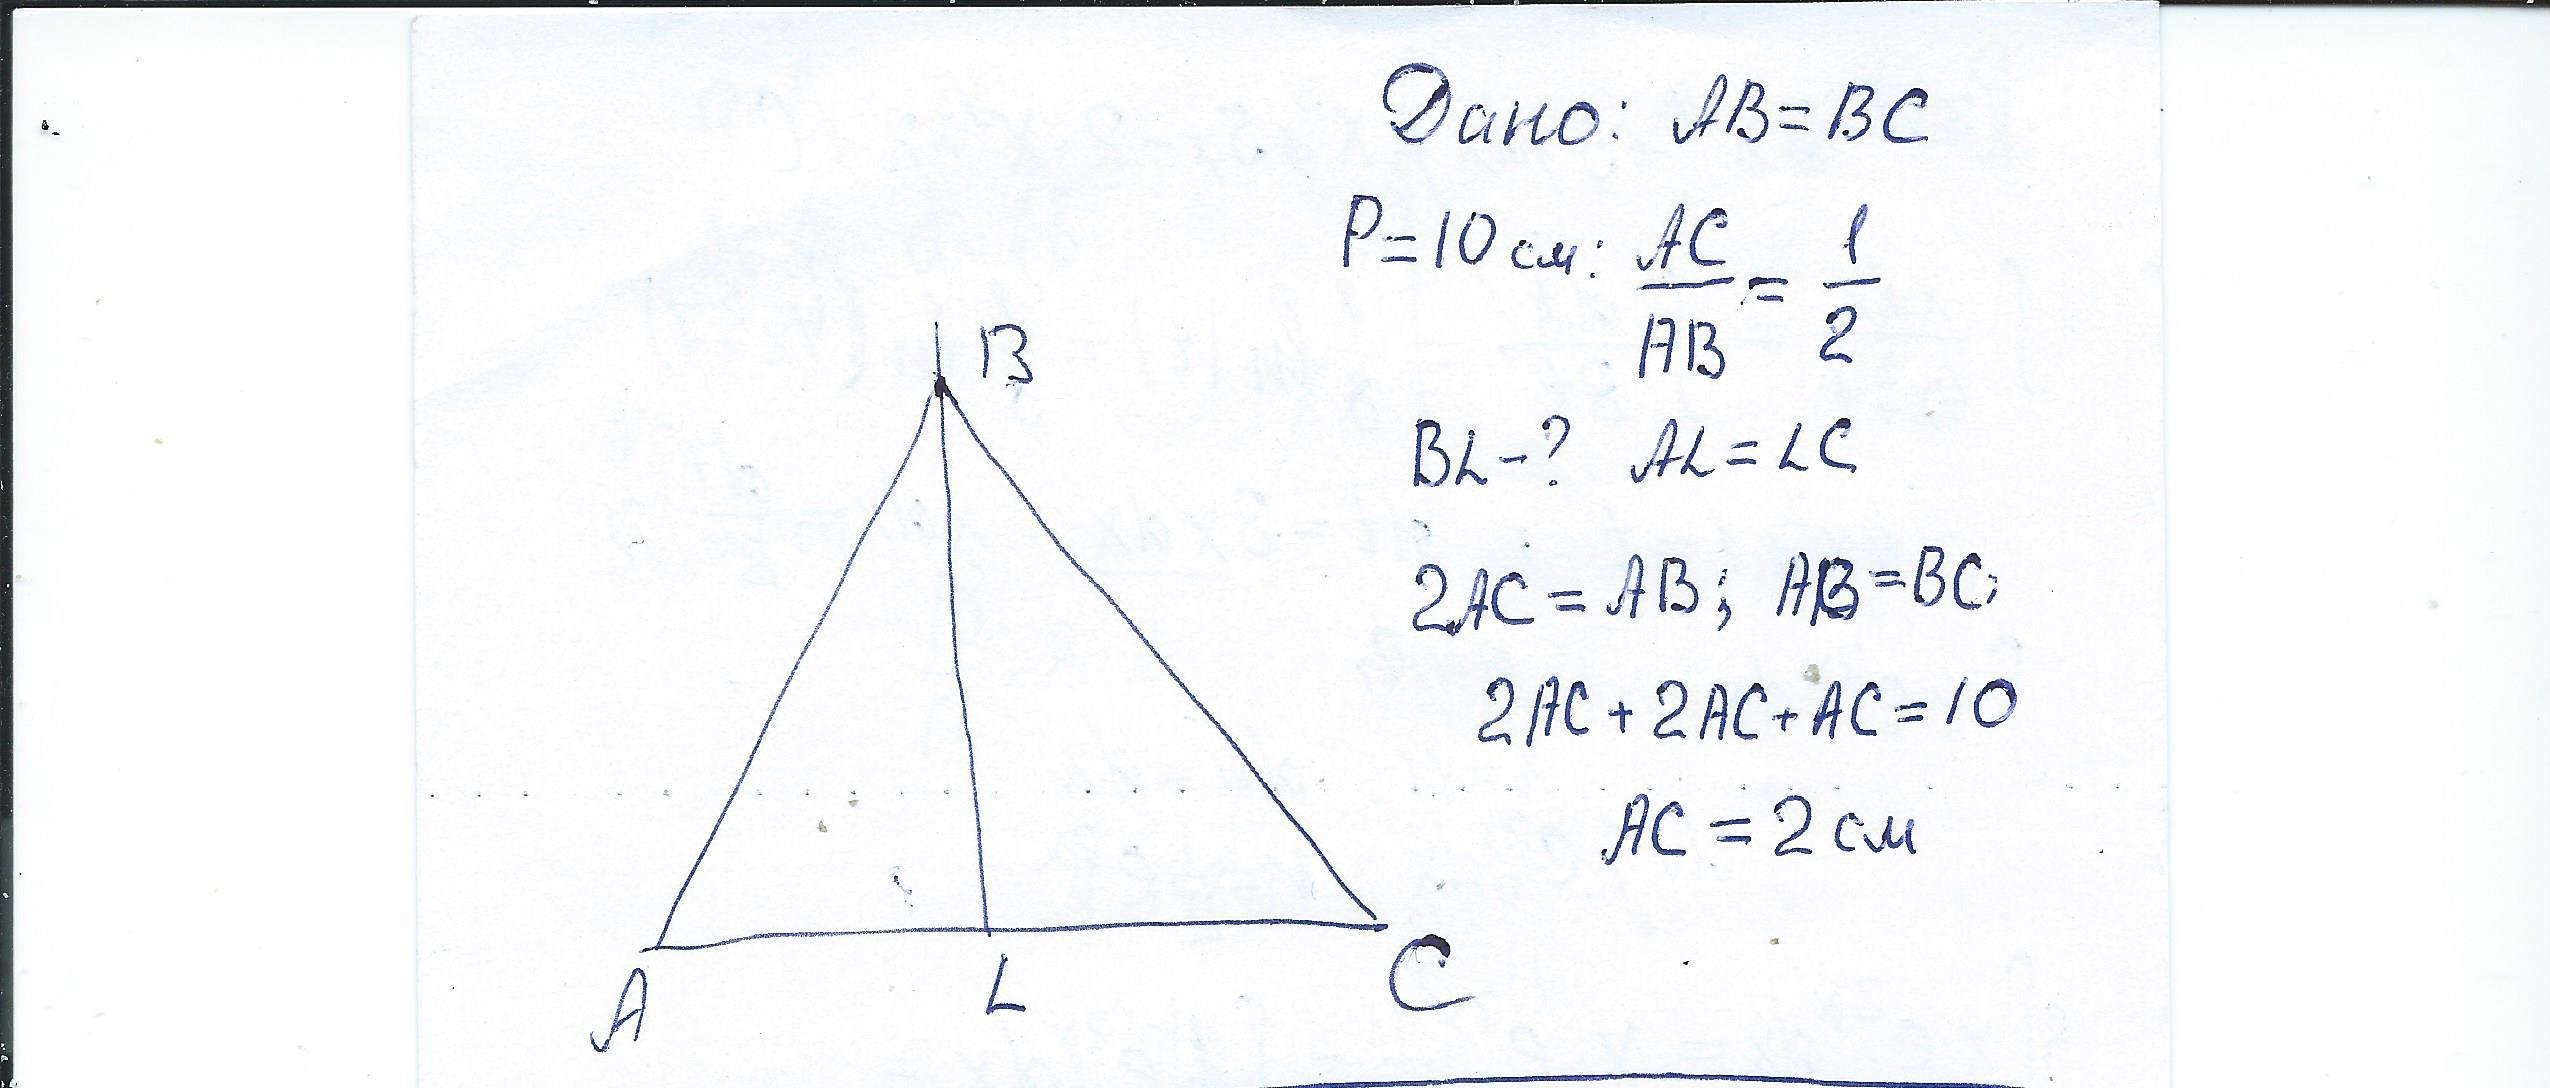 Дано: AB = BC
P = 10 см: AC/AB = 1/2
B
BL - ? AL = LC
2AC = AB; AB = BC;
2AC + 2AC + AC = 10
AC = 2 см
A L C